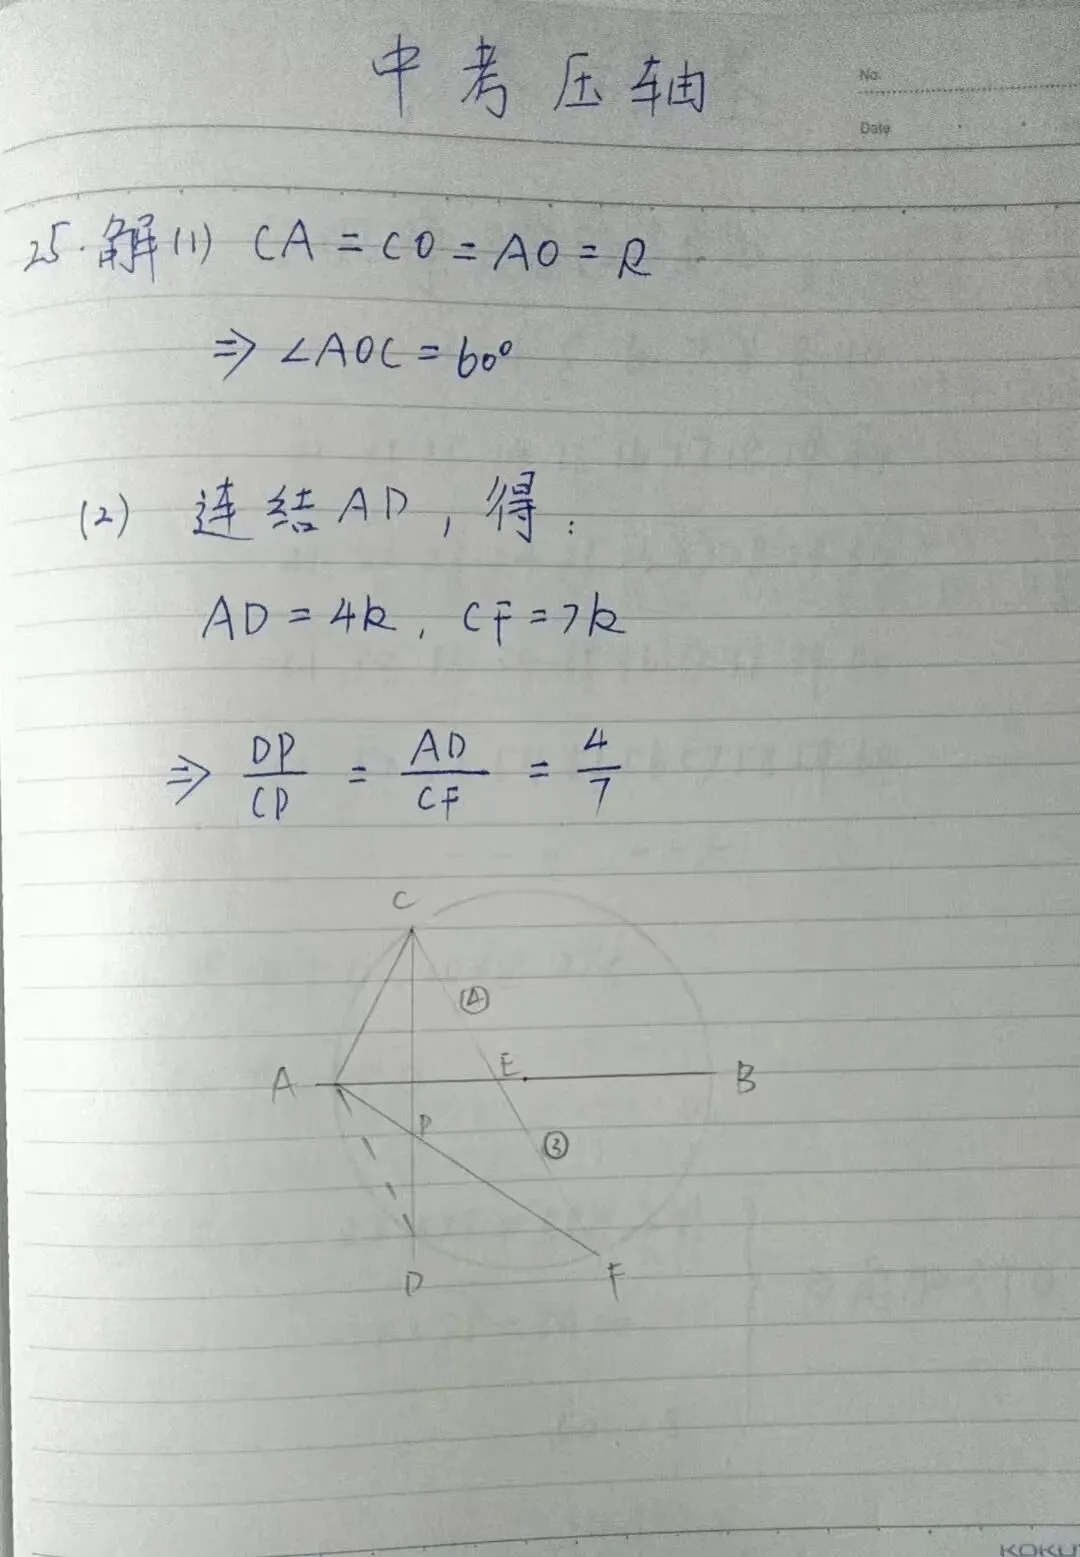 No.
Date
中考压轴
25.解(1) CA = CO = AO = R
⇒ ∠AOC = 60°
(2) 连结AD, 得:
AD = 4k, CF = 7k
⇒ DP/CP = AD/CF = 4/7
C
④
A E B
P ③
D F
KOKU